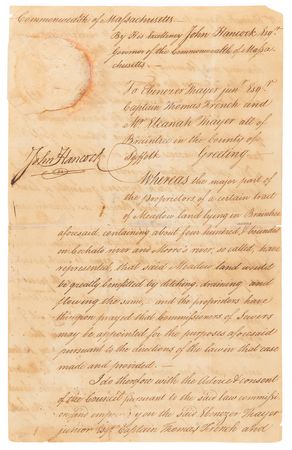 Commonwealth of Massachusetts
By His Excellency John Hancock Esqr.
Governor of the Commonwealth of Massa-
chusetts
To Ebenezer Thayer junr. Esqr.
Captain Thomas French and
Mr. Elkanah Thayer all of
Braintree in the County of
Suffolk Greeting
John Hancock
Whereas the major part of
the Proprietors of a certain tract
of Meadow land lying in Braintree
aforesaid, containing about four hundred & bounded
on river and river, so called, have
represented, that said Meadow land would
be greatly benefited by ditching, draining and
flowing the same, and the proprietors have
thereupon prayed that Commissioners of Sewers
may be appointed for the purposes aforesaid
pursuant to the directions of the law in that case
made and provided.
I do therefore with the Advice & consent
of the Council pursuant to the said law commis-
sion and empower you the said Ebenezer Thayer
junior Esqr. Captain Thomas French and